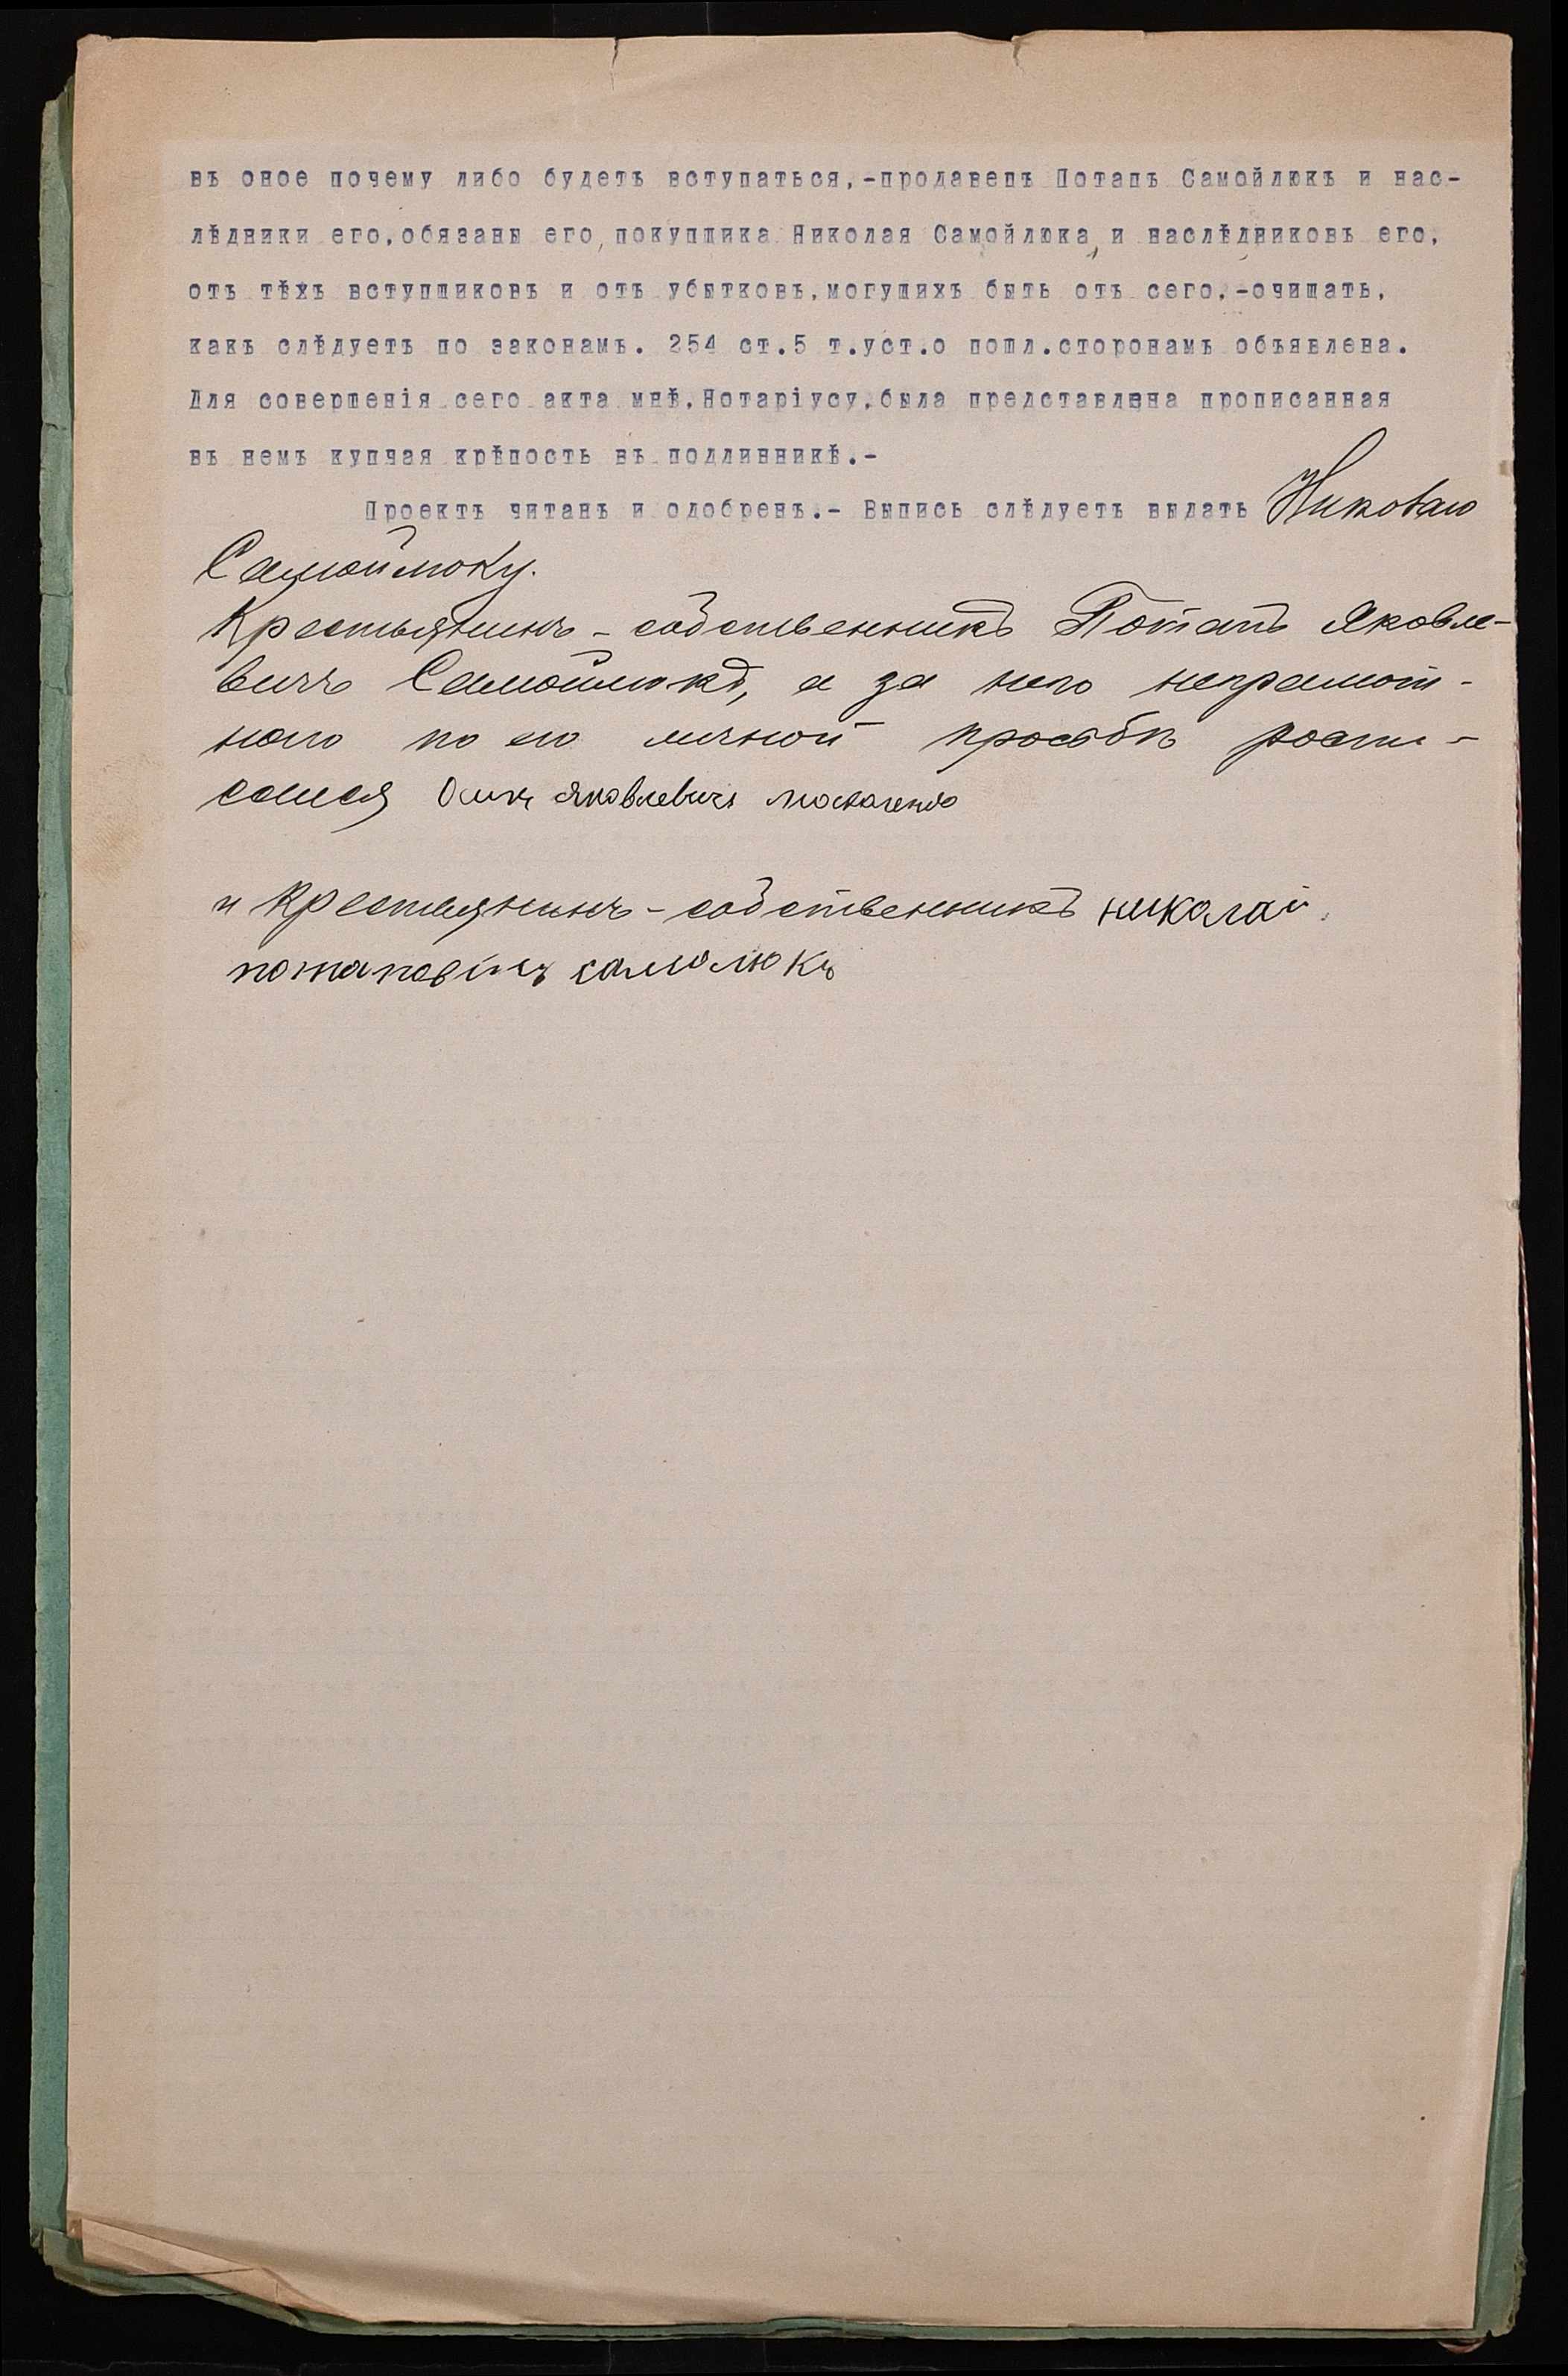 въ оное почему либо будетъ вступаться,-продавецъ Потапъ Самойлюкъ и нас-
лѣдники его,обязаны его, покупщика Николая Самойлюка, и наслѣдниковъ его,
отъ тѣхъ вступщиковъ и отъ убытковъ,могущихъ быть отъ сего,-очищать,
какъ слѣдуетъ по законамъ. 254 ст.5 т.уст.о пошл.сторонамъ объявлена.
Для совершенія сего акта мнѣ,Нотаріусу,была представлена прописанная
въ немъ купчая крѣпость въ подлинникѣ.-
Проектъ читанъ и одобренъ.- Выпись слѣдуетъ выдать Николаю
Самойлюку.
Крестьянинъ - собственникъ Потапъ Яковле-
вичъ Самойлюкъ, а за него неграмот-
наго по его личной просьбѣ роспи-
сался Яковлевичъ
и крестьянинъ - собственникъ николай
потаповичъ самолюкъ